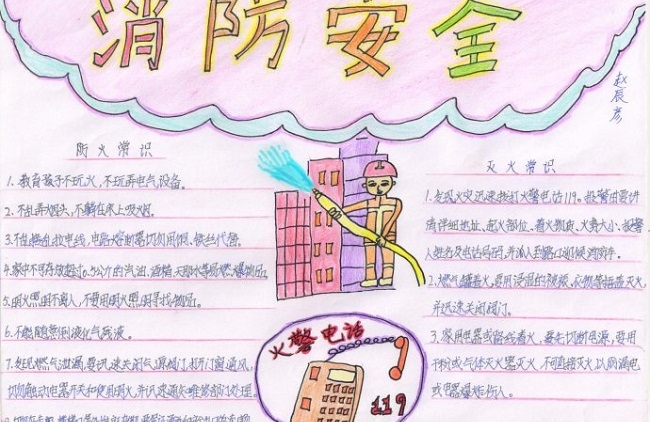 消防安全
赵辰彦
防火常识
1.教育孩子不玩火，不玩弄电气设备。
2.不乱丢烟头，不躺在床上吸烟。
3.不乱接乱拉电线，电路熔断器切勿用铜、铁丝代替。
4.家中不可存放超过0.5公斤的汽油、酒精、天那水等易燃易爆物品。
5.明火照明不离人，不要用明火照明寻找物品。
6.不能随意倒液化气残液。
7.发现燃气泄漏，要迅速关闭气源阀门，打开门窗通风，
切勿触动电器开关和使用明火，并迅速通知维修部门处理。
灭火常识
1.发现火灾迅速拨打火警电话119。报警时要讲
清详细地址、起火部位、着火物质、火势大小、报警
人姓名及电话号码，并派人到路口迎候消防车。
2.燃气罐着火，要用浸湿的被褥、衣物等捂盖灭火，
并迅速关闭阀门。
3.家用电器或线路着火，要先切断电源，再用
干粉或气体灭火器灭火，不可直接灭火，以防漏电
或电器爆炸伤人。
火警电话
119